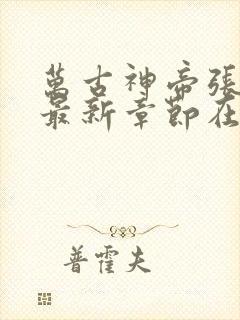 萬古神帝張
最新章節在
普霍夫